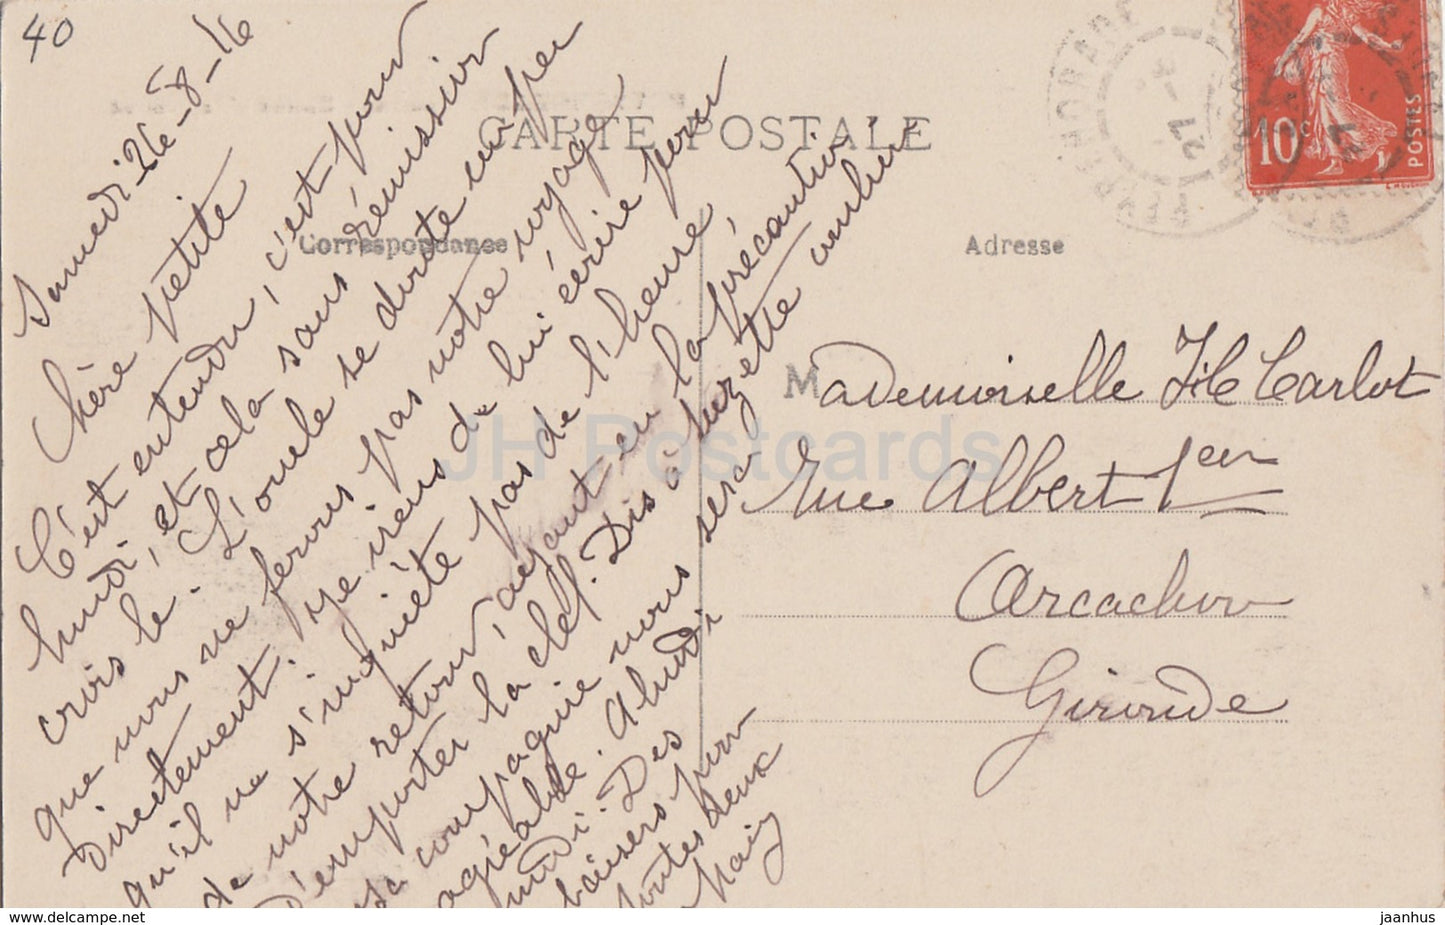 40
CARTE POSTALE
Correspondance
Adresse
10c
POSTES
Samedi 26-8-16
Chère petite
C'est entendu, c'est pour
lundi, et cela sans rémission
crois le. L'oncle se doute un peu
que nous ne ferons pas notre voyage
directement. Je viens de lui écrire pour
qu'il ne s'inquiète pas de l'heure
de notre retour, ayant eu la précaution
d'emporter la clef. Dis à Suzette combien
sa compagnie nous sera
agréable. A lundi
midi. Des
baisers pour
toutes deux
Mademoiselle Carlot
Rue Albert 1er
Arcachon
Gironde
JH Postcards
www.delcampe.net
jaanhus